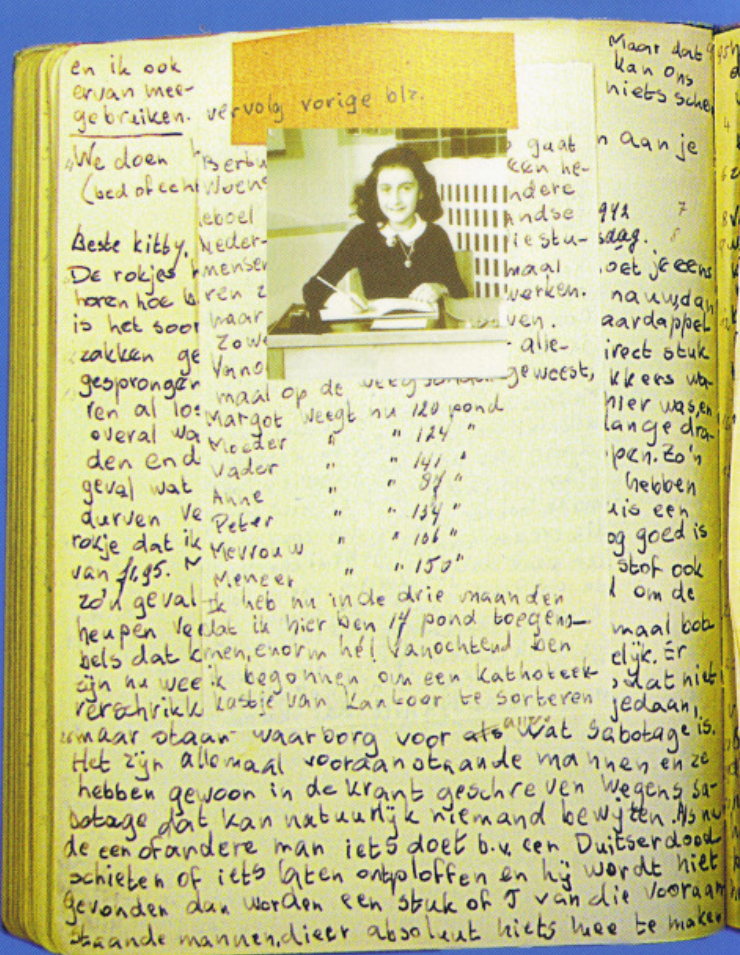 en ik ook
ervan mee-
gebruiken.
We doen
(bed of echt
Beste kitty.
De rokjes
horen hoe
is het soor
zakken ge
gesprongen
ren al los
overal wa
den end
geval wat
durven ve
rokje dat ik
van
zo'n geval
heupen ve
bels dat
zijn nu wee
verschrikk
vervolg vorige blz.
Woens
eboel
Neder-
mensen
ren z
maar
Zowe
gaat
een he-
ndere
andse
iestu-
maal
werken.
ven.
allle-
maal op de geweest,
Margot weegt nu 120 pond
Moeder " " 124 "
Vader " " 141 "
Anne " " 87 "
Peter " " 134 "
Mevrouw " " 106 "
Meneer " " 150 "
Ik heb nu in de drie maanden
dat ik hier ben 17 pond toegeno-
men, enorm hé! Vanochtend ben
ik begonnen om een kathoteek
kastje van kantoor te sorteren
Maar dat
kan ons
niets sche
n aan je
942
sdag.
oet je eens
nauw, dan
aardappel
irect stuk
kkers wa-
hier was, en
lange dra-
pen. Zo'n
hebben
uis een
og goed is
stof ook
om de
maal bot
elijk. Er
dat niet
jedaan,
maar staan waarborg voor als alles wat sabotage is.
Het zijn allemaal vooraanstaande mannen en ze
hebben gewoon in de krant geschreven wegens sa-
botage dat kan natuurlijk niemand bewijzen. Als nu
de een of andere man iets doet b.v. een Duitser dood
schieten of iets laten ontploffen en hij wordt niet
gevonden dan worden een stuk of 5 van die vooraan
staande mannen, die er absoluut niets mee te maken